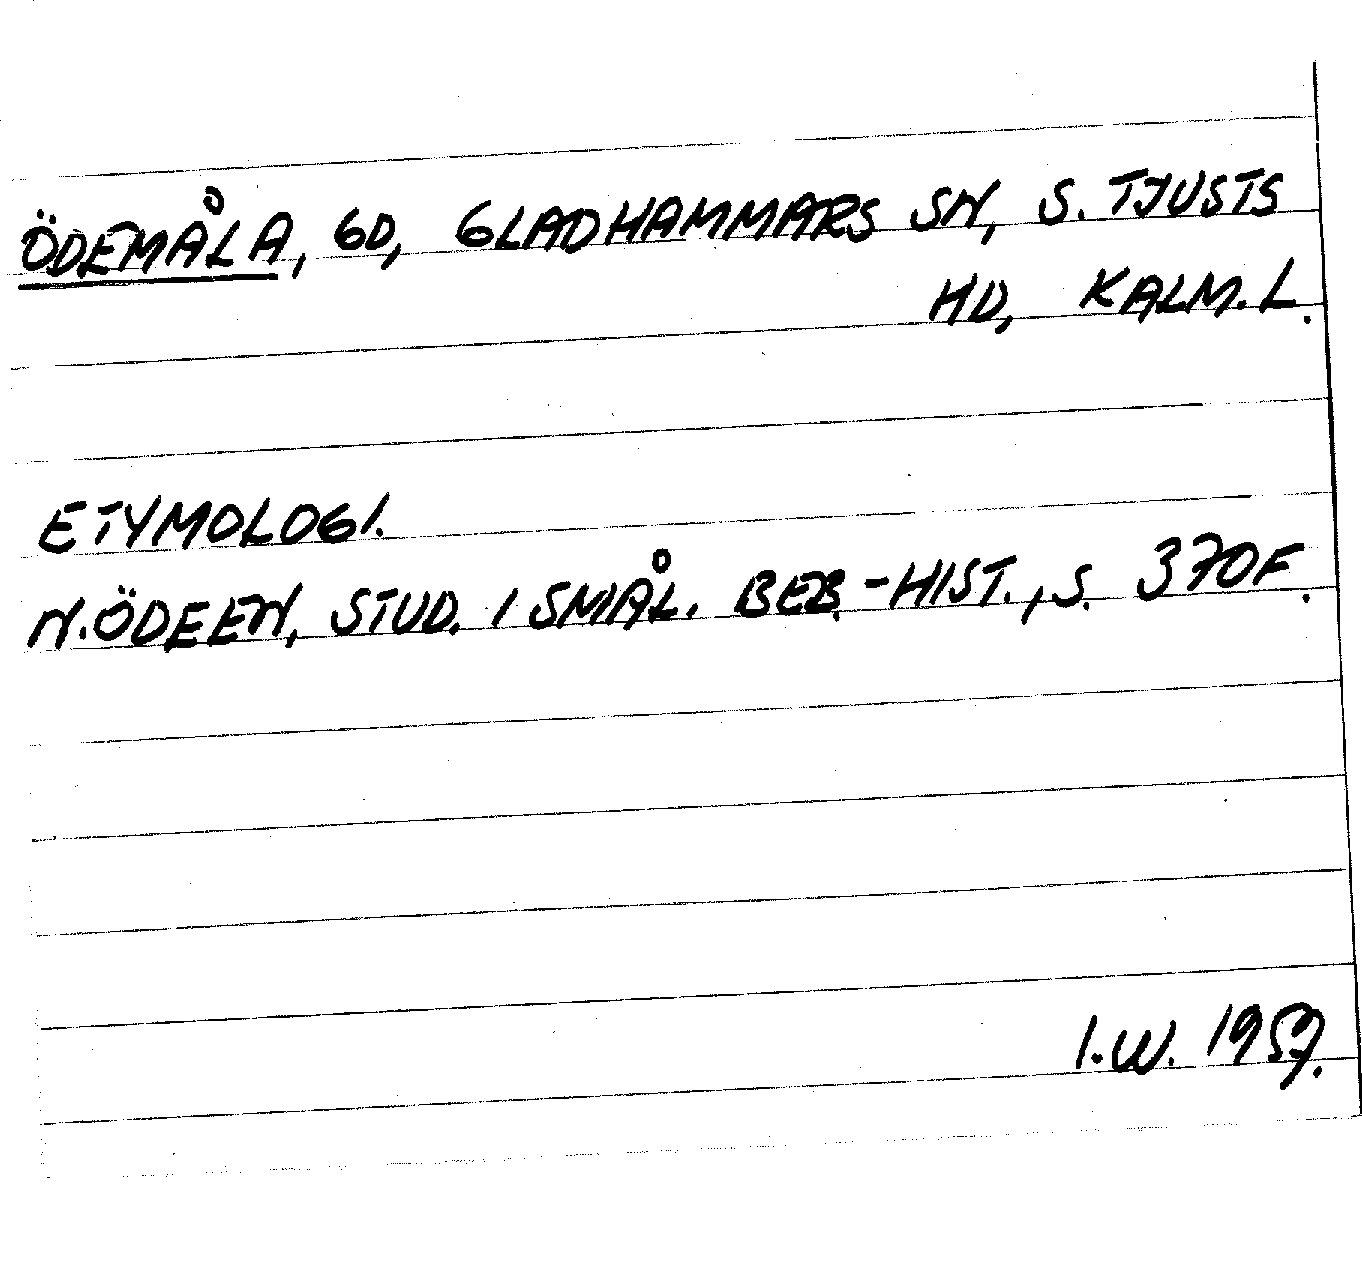 ÖDEMÅLA, GD, GLADHAMMARS SN, S. TJUSTS
HD, KALM. L.
ETYMOLOGI.
N. ÖDEEN, STUD. I SMÅL. BEB.-HIST., S. 370F.
I.W. 1957.